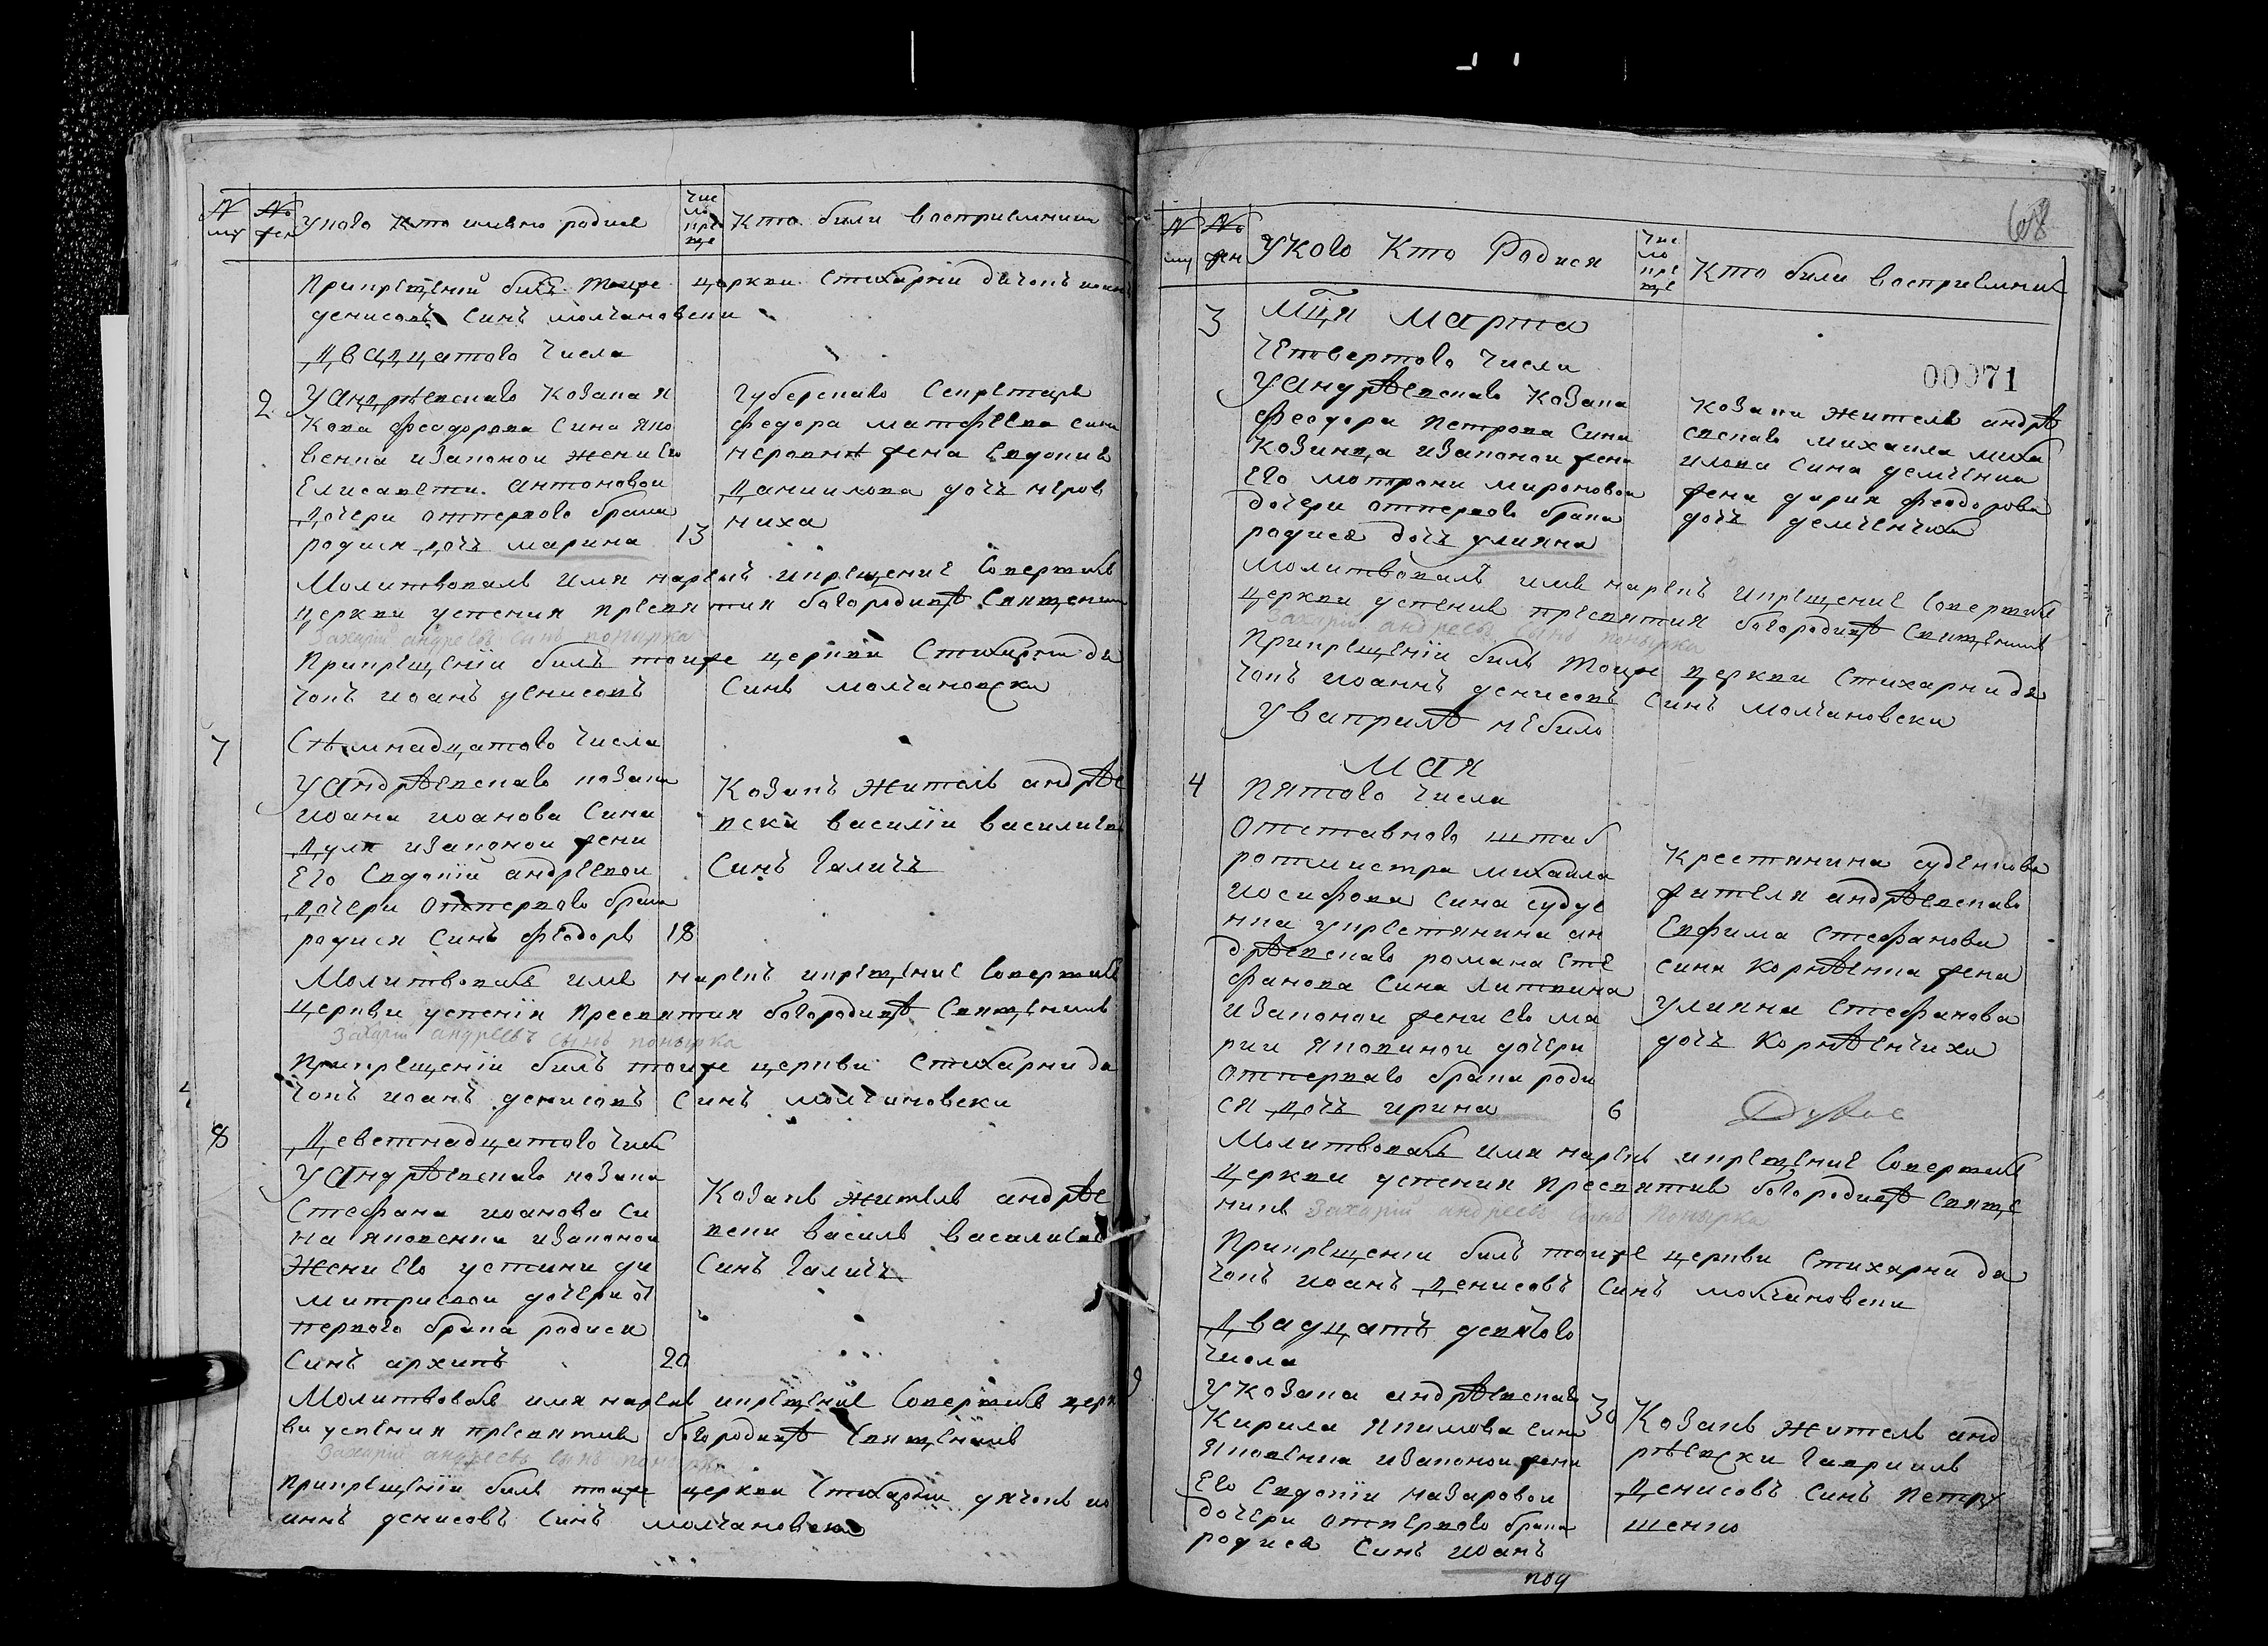 № му
№ жен
У кого кто имено родися
Чис ло кре ще
Кто били восприемники
Прикрещеніи билъ тоиже церкви Стихарній дячокъ иоанъ
денисовъ Синъ молчановски
Двадцатого числа
2
У Андрѣевскаго Козака Я
Кова феодорова Сина Яко
венка изаконои жени Его
Елисавети Антоновои
Дочери отперваго брака
родися дочь марина
13
Губерскаго Секретаря
федора матфеева сина
жена Евдокия
Даниилова дочь
Молитвовалъ имя нарекъ икрещение Совершилъ
церкви успения пресвятия богородицѣ Священникъ
Захарій андреевъ сынъ понырка
Прикрещеніи билъ тоиже церкви Стихарни дя
чокъ иоанъ денисовъ Синъ молчановски
7
Сѣмнадцатого числа
У Андрѣевскаго козака
иоана иоанова Сина
изаконои жени
Его Евдокіи андреевои
дочери отперваго брака
родися Синъ феодоръ
18
Козакъ житель андрѣе
вски василіи василиевъ
Синъ Галичъ
Молитвовалъ имя нарекъ икрещение Совершилъ
церкви успенія пресвятия богородицѣ Священникъ
Захарій андреевъ сынъ понырка
Прикрещеніи билъ тоиже церкви Стихарни дя
чокъ иоанъ денисовъ Синъ молчановски
8
Деветнадцатого числа
У Андрѣевскаго козака
Стефана иоанова Си
на яковенка изаконои
Жени Его устини ди
митриевои дочери от
перваго брака родися
Синъ архипъ
20
Козакъ житель андрѣе
вски василь василиевъ
Синъ Галичъ
Молитвовалъ имя нарекъ икрещение Совершилъ церк
ви успения пресвятия богородицѣ Священникъ
Захарій андреевъ сынъ понырка
Прикрещеніи билъ тоиже церкви Стихарніи дячокъ ио
аннъ денисовъ Синъ молчановски
68
№ му
№ жен
У Кого Кто Родися
Чис ло кре ще
Кто били восприемник
00071
3
Мця Марта
Четвертого числа
У Андрѣевскаго Козака
феодора Петрова Сина
Козинца изаконои жени
Его мотрони мироновои
дочери отперваго брака
родися дочь улияна
Козака жителя андрѣ
евскаго михаила миха
илова Сина демченка
жена дария феодорова
дочь демченчиха
Молитвовалъ имя нарекъ икрещение Совершилъ
церкви успения пресвятия богородицѣ Священникъ
Захарій андреевъ сынъ понырка
Прикрещеніи билъ тоиже церкви Стихарни дя
чокъ иоаннъ денисовъ Синъ молчановски
У ваприлѣ небило
Мая
4
Пятого числа
Отставного штаб
ротмистра михаила
иосифова Сина судуе
нка укрестянина ан
дрѣевскаго романа Сте
фанова Сина Литвина
изаконои жени Его ма
рии яковинои дочери
отперваго брака роди
ся дочь ирина
6
Крестянина судѣнкова
жителя андрѣевскаго
Евфима Стефанова
сина Корнѣенка жена
улияна Стефанова
дочь Корнѣенчиха
Молитвовалъ имя нарекъ икрещение Совершилъ
церкви успения пресвятия богородицѣ Свяще
никъ Захарій андреевъ сынъ Понырка
Прикрещении билъ тоиже церкви Стихарни дя
чокъ иоанъ денисовъ Синъ молчановски
9
Двадцать девятого
числа
У Козака андрѣевскаго
Кирила Якимова Сина
Яковенка изаконои жени
Его Евдокіи назаровои
дочери отперваго брака
родися Синъ иоанъ
30
Козакъ житель анд
рѣевски Гавриилъ
Денисовъ Синъ петру
шенко